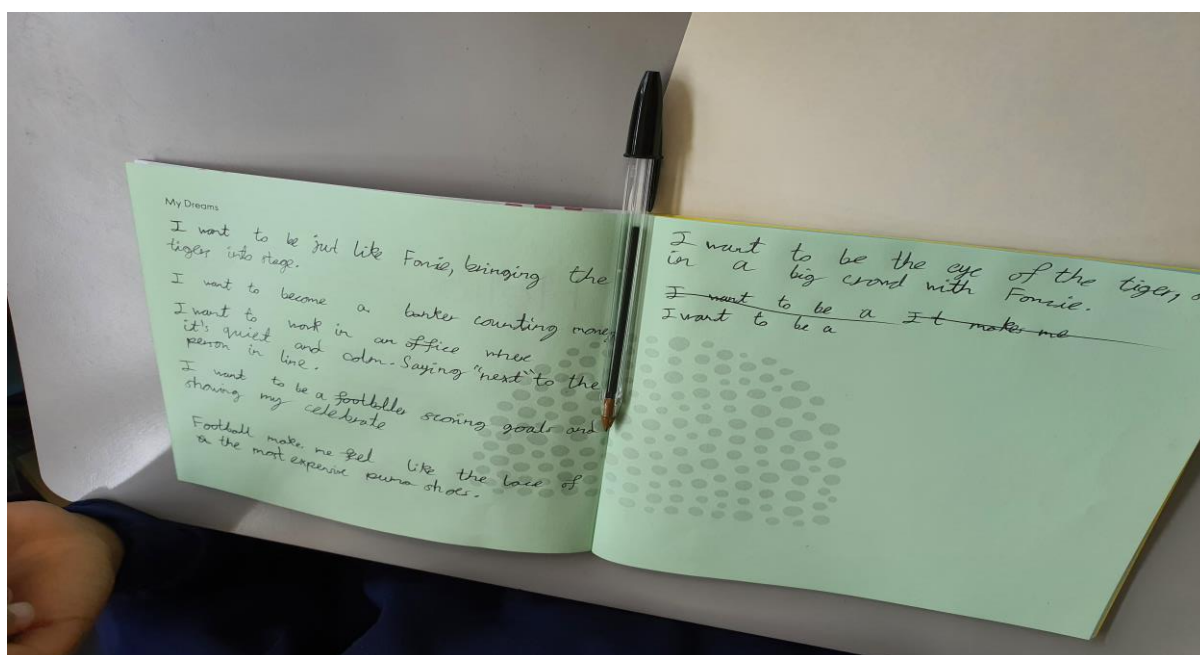 My Dreams
I want to be just like Fonzie, bringing the
tiger into stage.
I want to become a banker counting money
I want to work in an office where
it's quiet and calm. Saying "next" to the
person in line.
I want to be a footballer scoring goals and
showing my celebrate
Football make me feel like the lace of
the most expensive puma shoes.
I want to be the eye of the tiger,
in a big crowd with Fonzie.
I want to be a It makes me
I want to be a